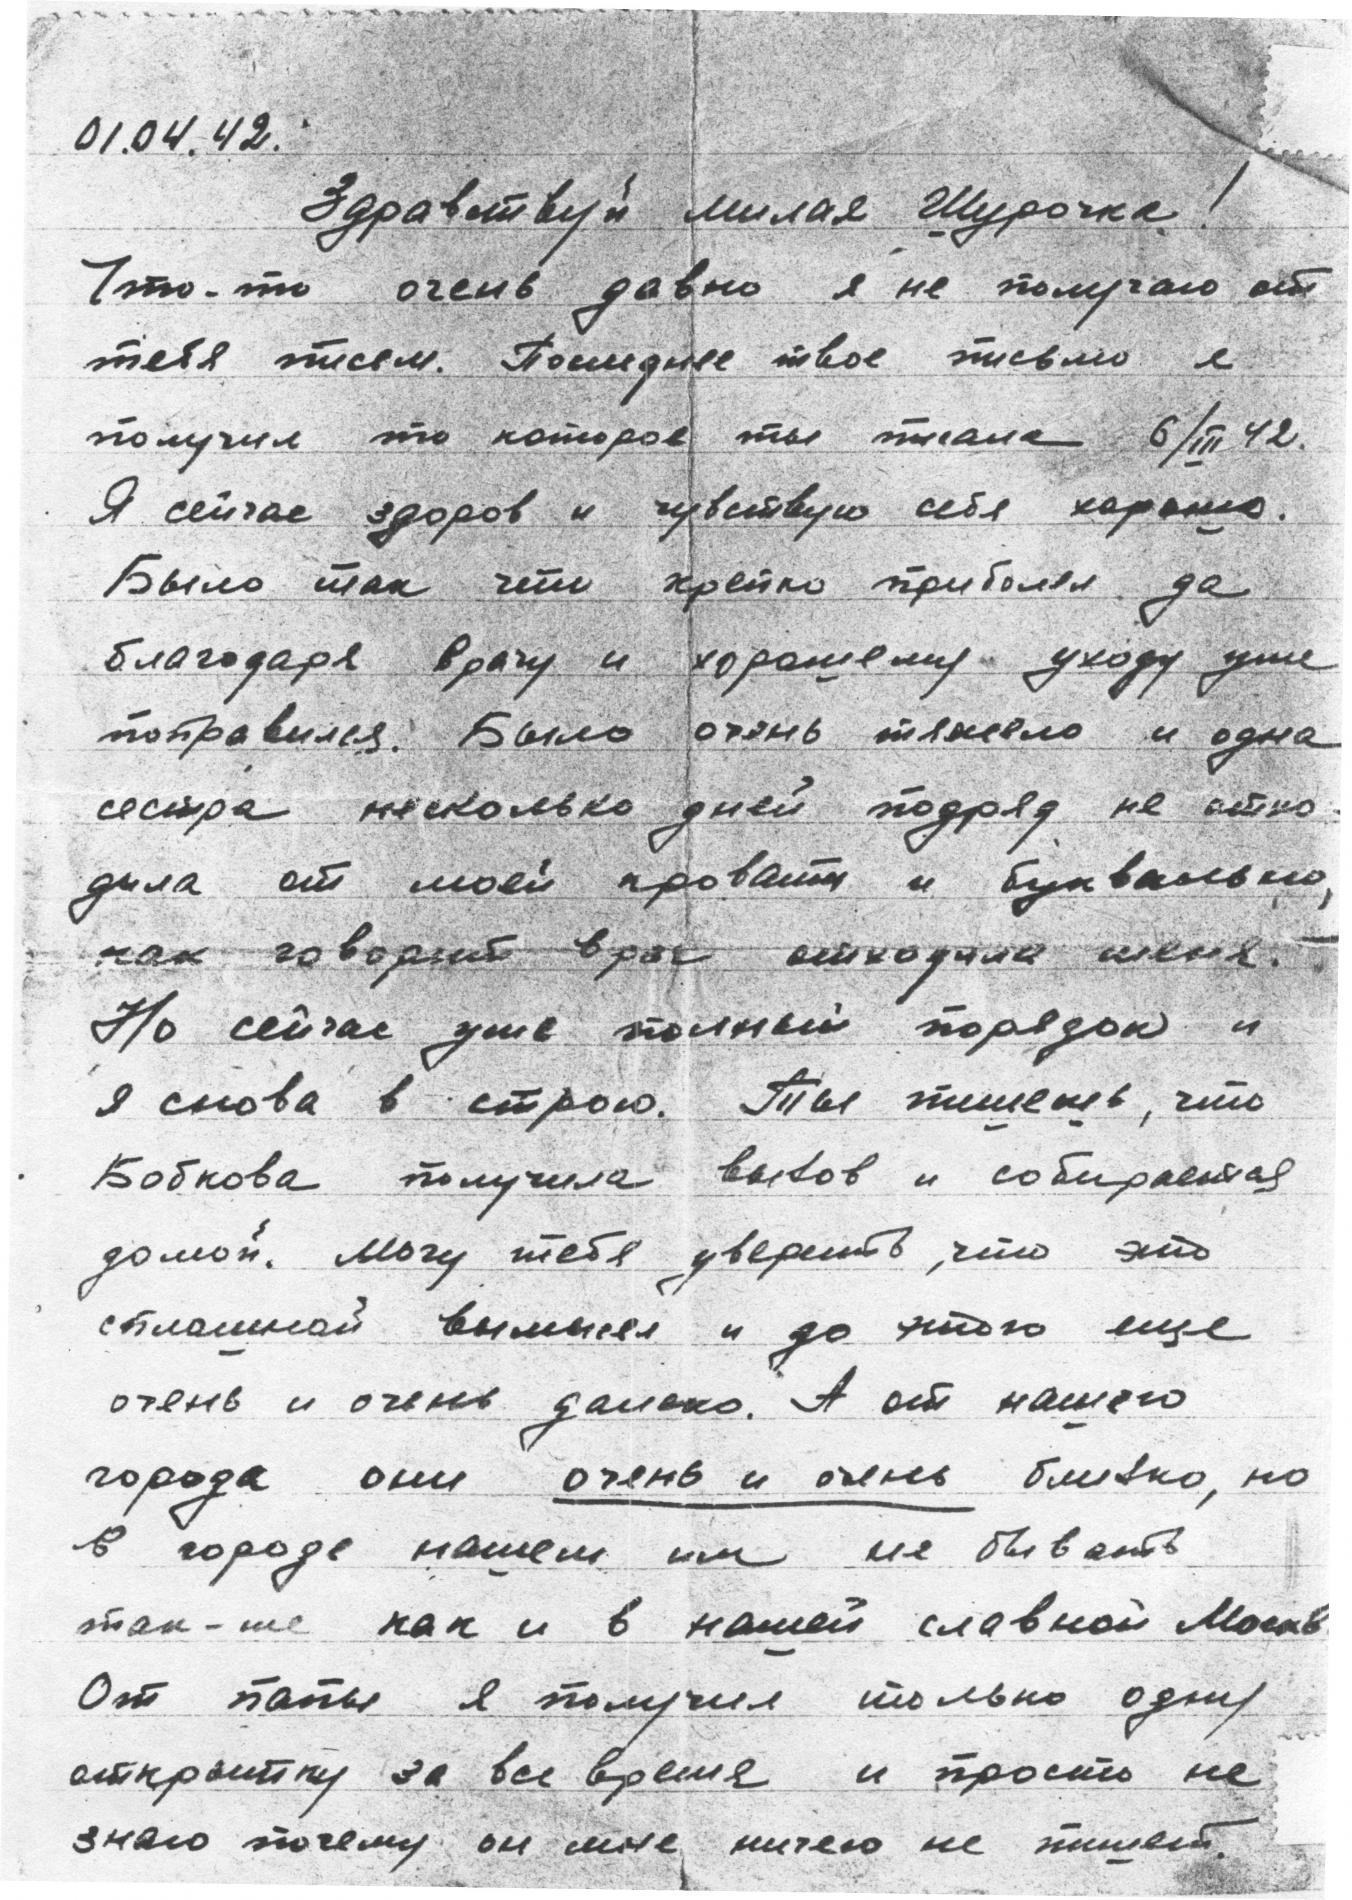 01.04.42.
Здравствуй милая Шурочка!
Что-то очень давно я не получаю от
тебя писем. Последнее твое письмо я
получил то которое ты писала 6/III 42.
Я сейчас здоров и чувствую себя хорошо.
Было так что крепко приболел да
благодаря врачу и хорошему уходу уже
поправился. Было очень тяжело и одна
сестра несколько дней подряд не отхо-
дила от моей кровати и буквально,
как говорит врач отходила меня.
Но сейчас уже полный порядок и
я снова в строю. Ты пишешь, что
Бобкова получила вызов и собирается
домой. Могу тебя уверить, что это
сплошной вымысел и до этого еще
очень и очень далеко. А от нашего
города они очень и очень близко, но
в городе нашем им не бывать
так-же как и в нашей славной Москв
От папы я получил только одну
открытку за все время и просто не
знаю почему он мне ничего не пишет.